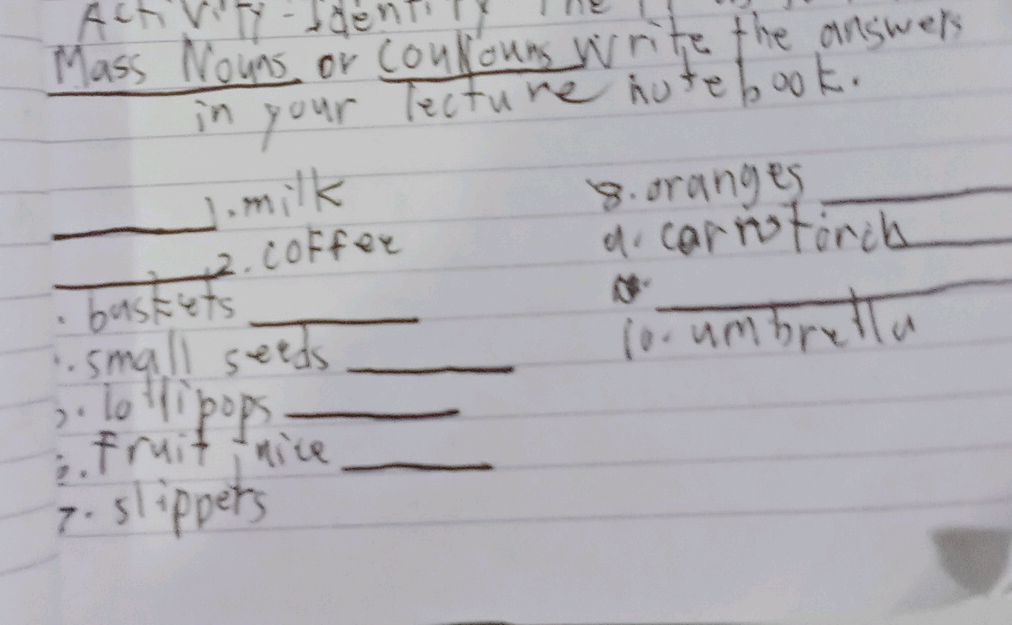 Activity-Identify The
Mass Nouns or CouNouns Write the answers
in your lecture notebook.
1. milk
2. coffee
. baskets
. small seeds
. lollipops
. Fruit juice
7. slippers
8. oranges
9.
10. umbrella